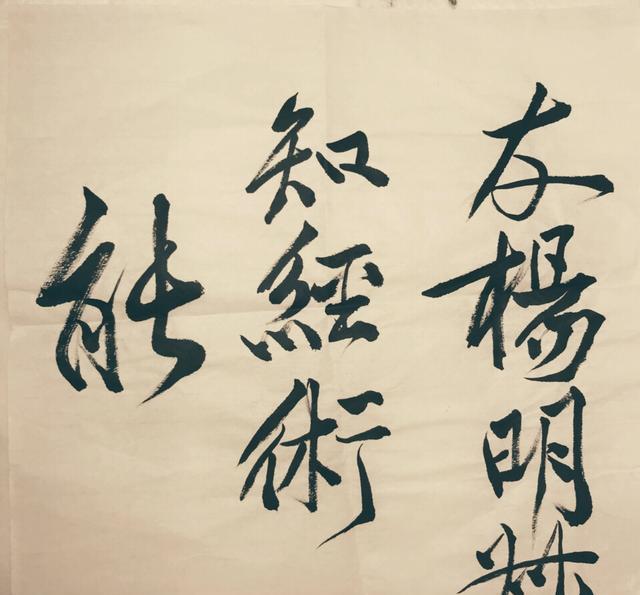 友楊明
知經術
能